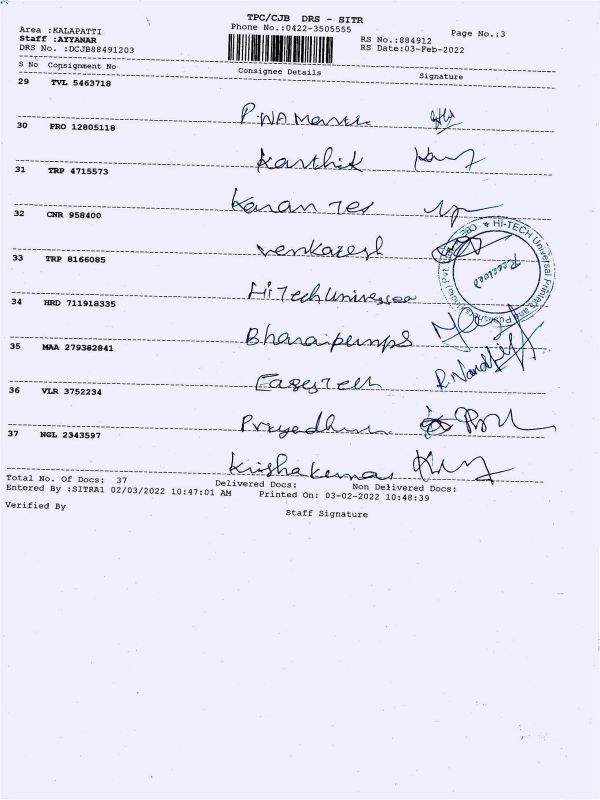 TPC/CJB DRS - SITR
Area :KALAPATTI
Phone No.:0422-3505555
Page No.:3
Staff :AYYANAR
RS No.:884912
DRS No. :DCJB88491203
RS Date:03-Feb-2022
S No Consignment No Consignee Details Signature
29 TVL 5463718
30 PRO 12805118
Karthik
31 TRP 4715573
Karan Tex
32 CNR 958400
Venkatesh
33 TRP 8166085
Hi Tech Universal
34 HRD 711918335
Bharaipumps
35 MAA 279382841
EasysTech
36 VLR 3752234
37 NGL 2343597
Krishakumar
HI-TECH Universal Printers and Publishers (India) Pvt.
Received
R. Nandi
Total No. Of Docs: 37 Delivered Docs: Non Delivered Docs:
Entered By :SITRA1 02/03/2022 10:47:01 AM Printed On: 03-02-2022 10:48:39
Verified By
Staff Signature